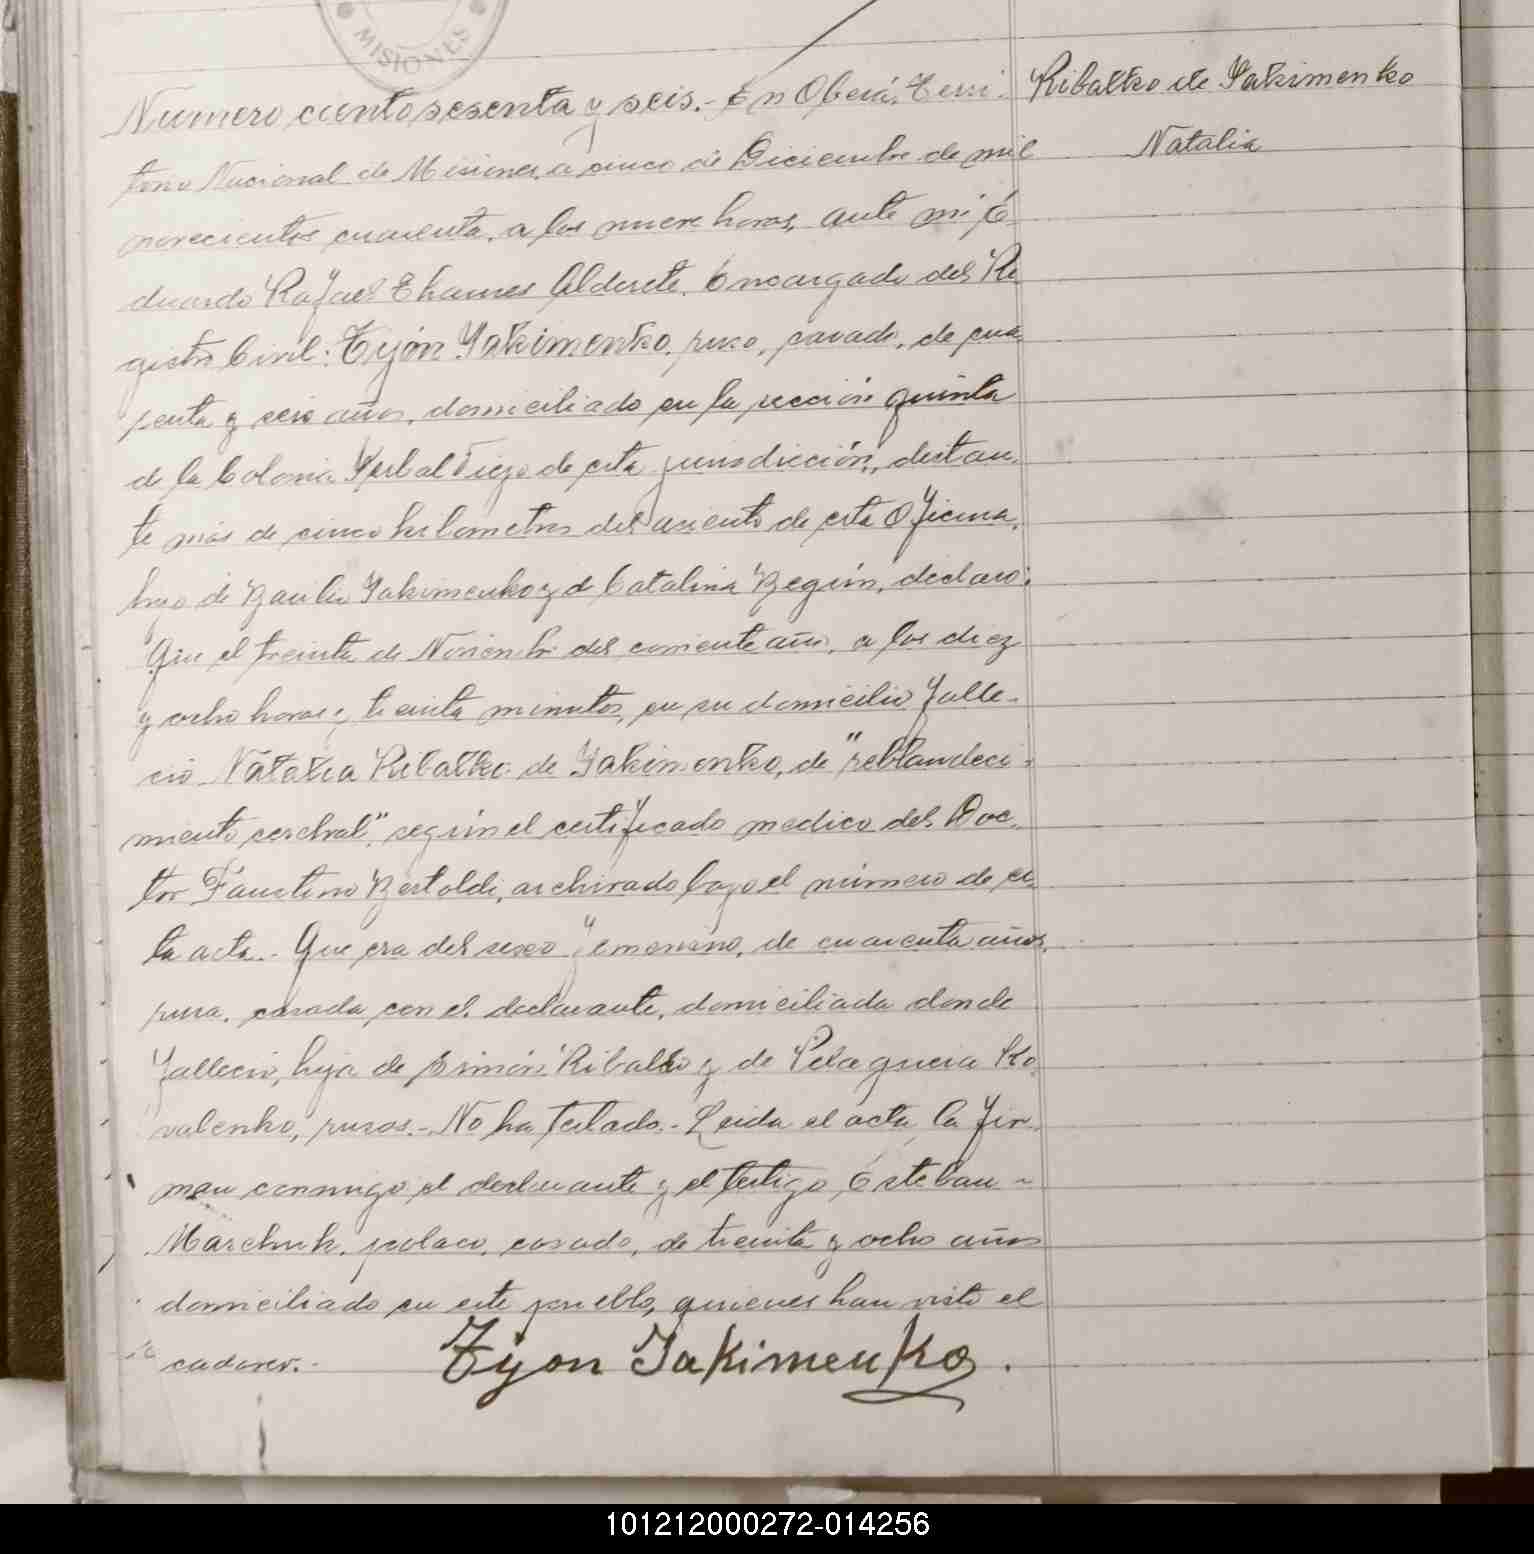 MISIONES
Numero ciento sesenta y seis.- En Oberá, Terri-
torio Nacional de Misiones, a cinco de Diciembre de mil
novecientos cuarenta, a las nueve horas, ante mi, E-
duardo Rafael Thames Alderete, Encargado del Re
gistro Civil: Tyón Yakimenko, ruso, casado, de cua
renta y seis años, domiciliado en la sección quinta
de la Colonia Yerbal Viejo de esta jurisdicción, distan-
te más de cinco kilometros del asiento de esta Oficina,
hijo de Basilio Yakimenko y de Catalina Begún, declaró:
Que el treinta de Noviembre del corriente año, a las diez
y ocho horas y treinta minutos, en su domicilio falle-
ció Natalia Ribalko de Yakimenko, de "reblandeci-
miento cerebral", según el certificado medico del Doc-
tor Faustino Bertoldi, archivado bajo el número de es-
ta acta.- Que era del sexo femenino, de cuarenta años,
rusa, casada con el declarante, domiciliada donde
falleció, hija de Simón Ribalko y de Pelagueia Ko-
valenko, rusos.- No ha testado.- Leida el acta, la fir-
man conmigo el declarante y el testigo, Esteban -
Marchuk, polaco, casado, de treinta y ocho años
domiciliado en este pueblo, quienes han visto el
cadaver.-
Tyon Yakimenko.
Ribalko de Yakimenko
Natalia
101212000272-014256